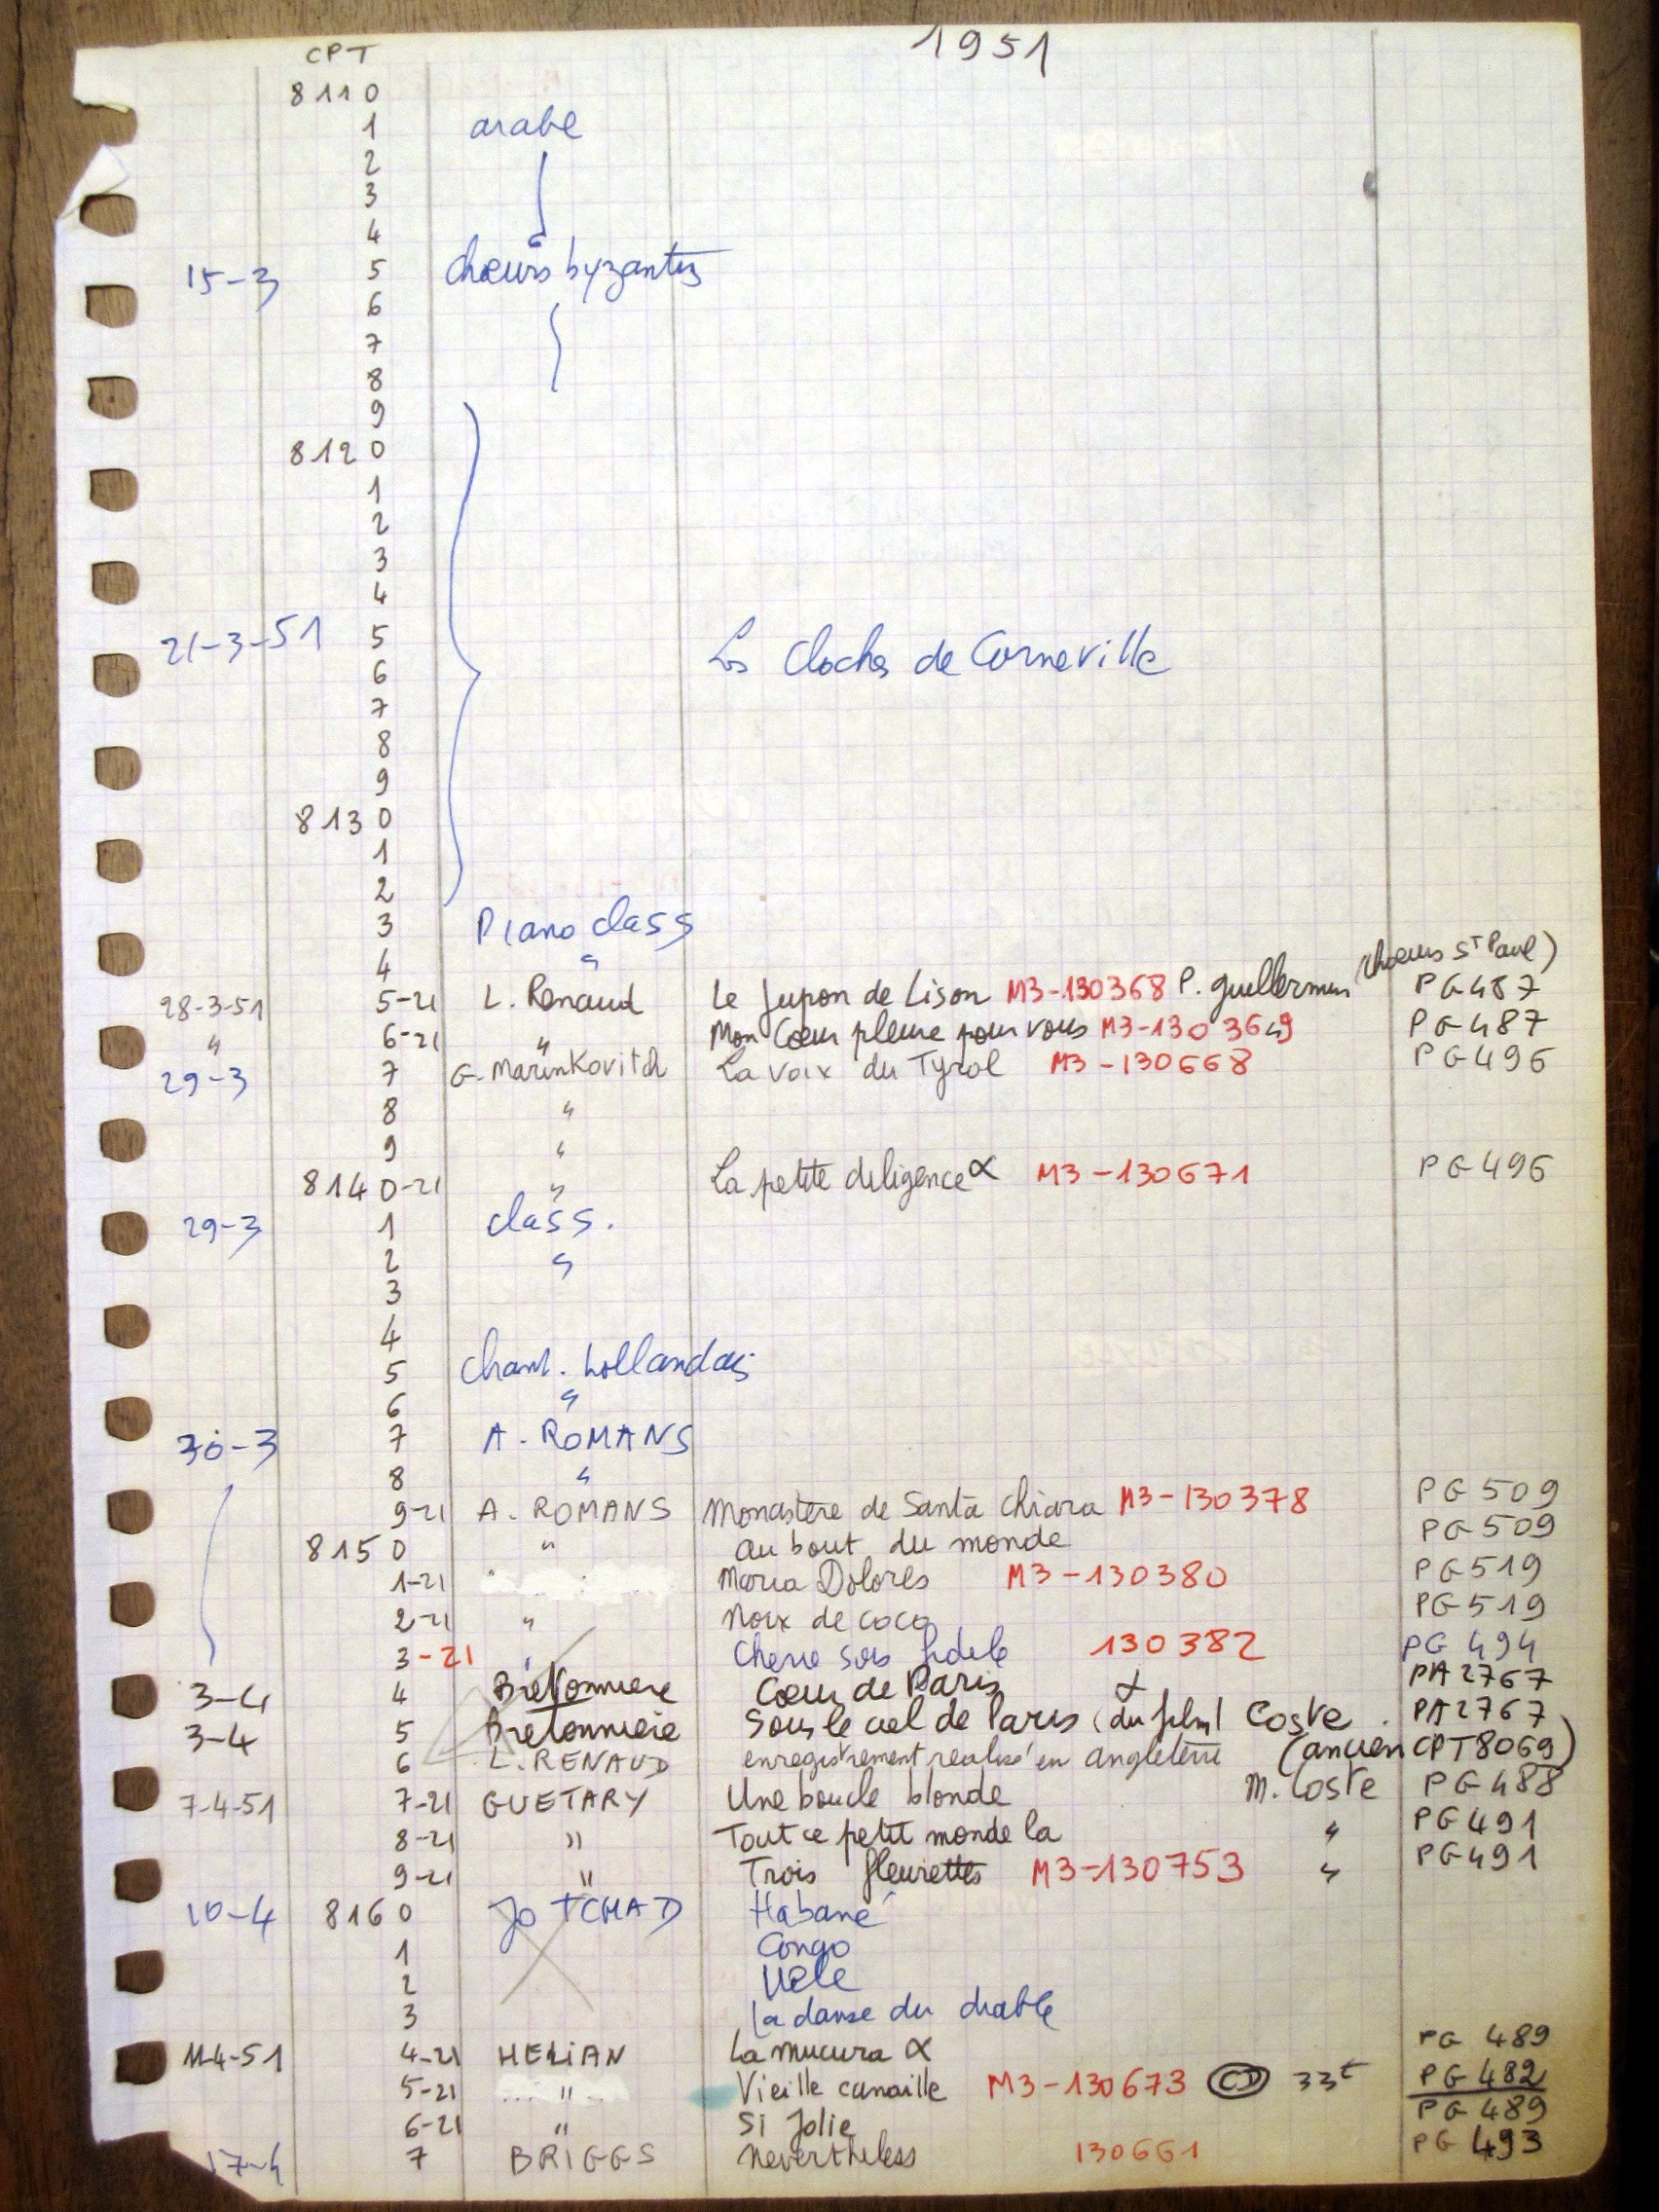 1951
CPT
8110
1 arabe
2
3
4 "
15-3 5 chœurs byzantins
6
7
8
9
8120
1
2
3
4
21-3-51 5 Les Cloches de Corneville
6
7
8
9
8130
1
2
3 Piano class
4 "
(chœurs St Paul)
28-3-51 5-21 L. Renaud Le Jupon de Lison M3-130368 P. Guillermin PG487
" 6-21 " Mon Cœur pleure pour vous M3-130369 PG487
29-3 7 G. Marinkovitch La voix du Tyrol M3-130668 PG496
8 "
9 "
8140-21 " La petite diligence α M3-130671 PG496
29-3 1 class.
2 "
3
4
5 Chant. hollandais
6 "
30-3 7 A. ROMANS
8 "
9-21 A. ROMANS Monastère de Santa Chiara M3-130378 PG509
8150 " au bout du monde PG509
1-21 " Maria Dolores M3-130380 PG519
2-21 " Noix de coco PG519
3-21 " Cherie sois fidele 130382 PG 494
3-4 4 Bretonniere Cœur de Paris α PA2767
3-4 5 Bretonniere Sous le ciel de Paris (du film) Coste . PA2767
6 L. RENAUD enregistrement realisé en angleterre (ancien CPT8069)
7-4-51 7-21 GUETARY Une boucle blonde M. Coste PG488
8-21 " Tout ce petit monde la " PG491
9-21 " Trois fleurettes M3-130753 " PG491
10-4 8160 Jo TCHAD Habané
1 Congo
2 Uele
3 La danse du diable
11-4-51 4-21 HELIAN La mucura α PG 489
5-21 " Vieille canaille M3-130673 CD 33t PG 482
6-21 " Si Jolie PG 489
17-4 7 BRIGGS Nevertheless 130661 PG 493